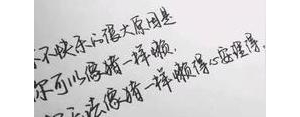 不快乐的很大原因是
你可以像猪一样懒.
法像猪一样懒得心安理得.